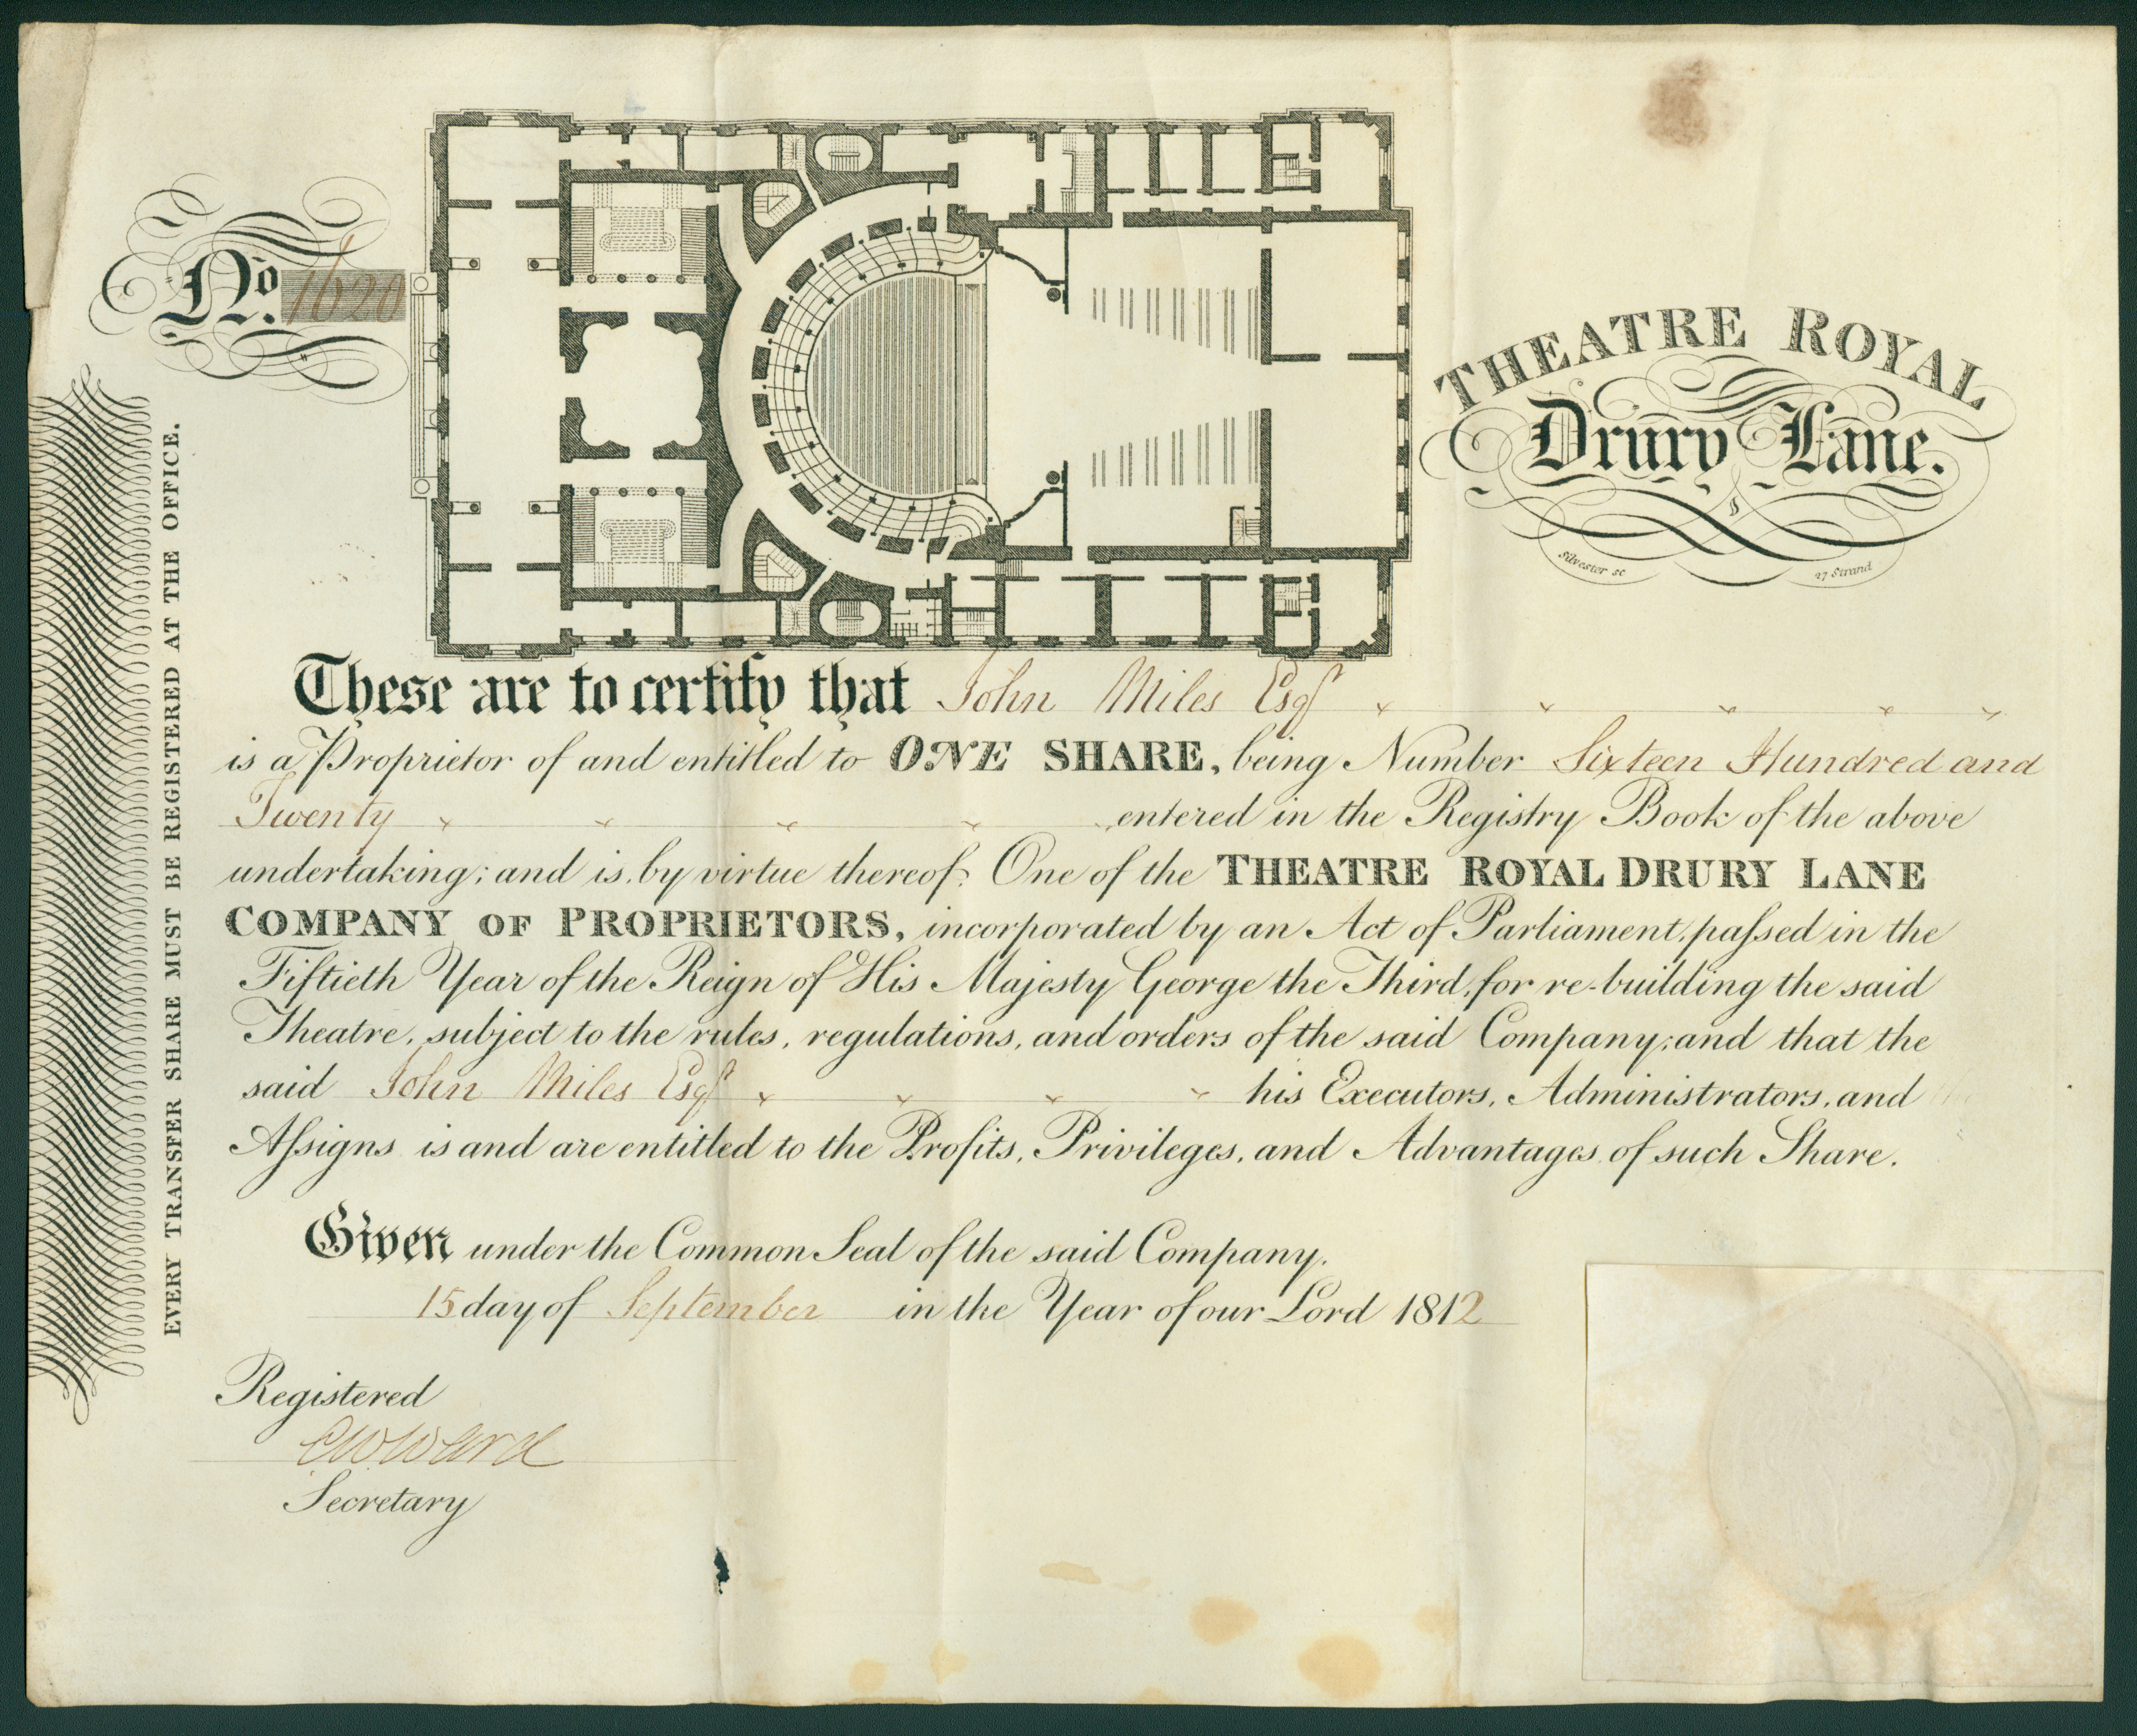 No. 1620
THEATRE ROYAL
Drury Lane.
Silvester sc
27 Strand
EVERY TRANSFER SHARE MUST BE REGISTERED AT THE OFFICE.
These are to certify that John Miles Esqr
is a Proprietor of and entitled to ONE SHARE, being Number Sixteen Hundred and
Twenty entered in the Registry Book of the above
undertaking; and is, by virtue thereof, One of the THEATRE ROYAL DRURY LANE
COMPANY OF PROPRIETORS, incorporated by an Act of Parliament, paſsed in the
Fiftieth Year of the Reign of His Majesty George the Third, for re-building the said
Theatre, subject to the rules, regulations, and orders of the said Company; and that the
said John Miles Esqr his Executors, Administrators, and
Aſsigns is and are entitled to the Profits, Privileges, and Advantages of such Share.
Given under the Common Seal of the said Company.
15 day of September in the Year of our Lord 1812
Registered
CWWard
Secretary